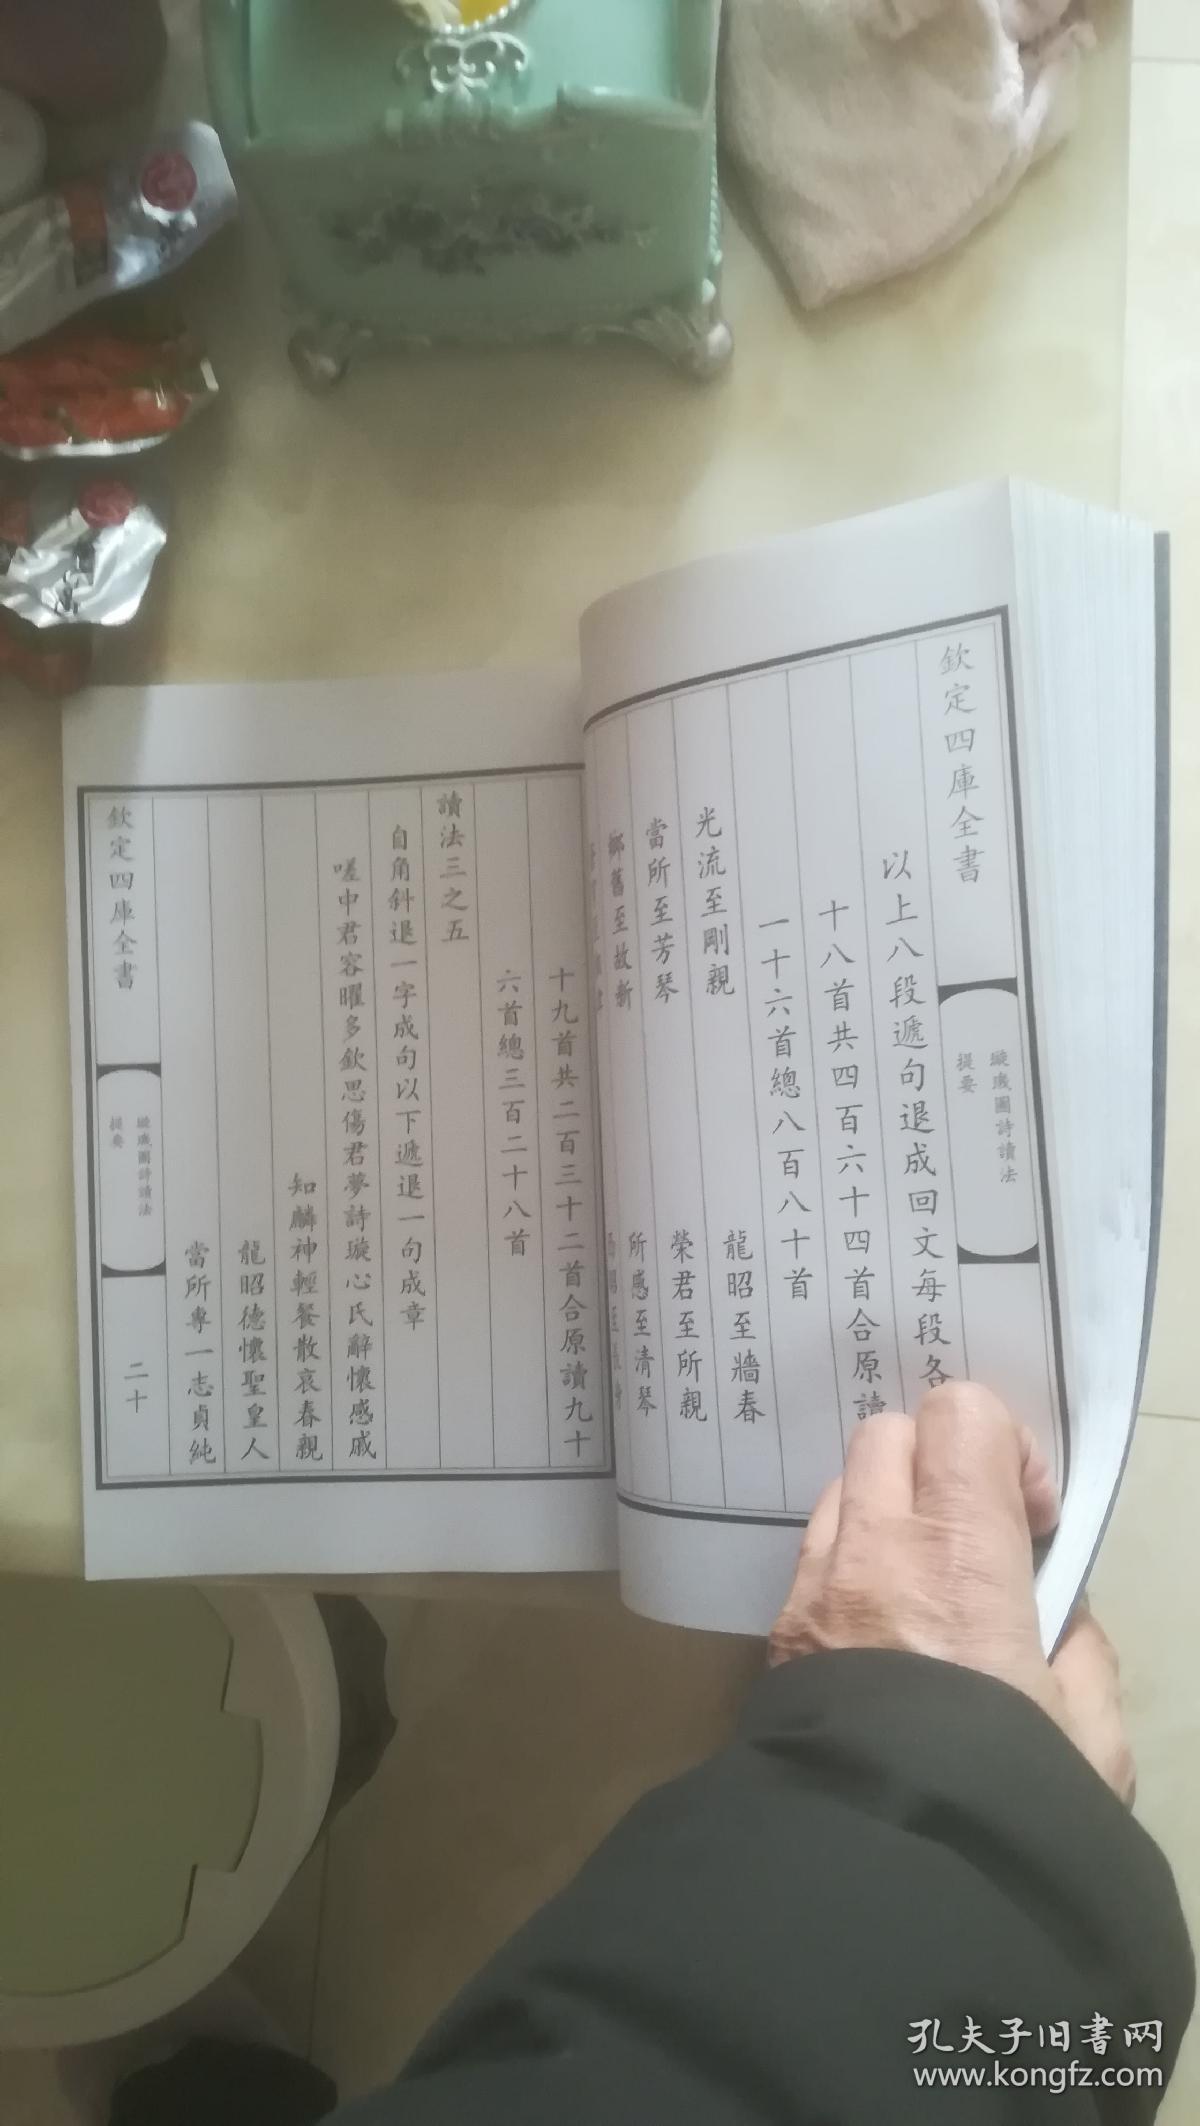 欽定四庫全書
璇璣圖詩讀法
提要
以上八段遞句退成回文每段各
十八首共四百六十四首合原讀
一十六首總八百八十首
龍昭至牆春
光流至剛親
榮君至所親
當所至芳琴
所感至清琴
鄉舊至故新
十九首共二百三十二首合原讀九十
六首總三百二十八首
讀法三之五
自角斜退一字成句以下遞退一句成章
嗟中君容曜多欽思傷君夢詩璇心氏辭懷感戚
知麟神輕餐散哀春親
龍昭德懷聖皇人
當所專一志貞純
欽定四庫全書
璇璣圖詩讀法
提要
二十
孔夫子旧書网
www.kongfz.com